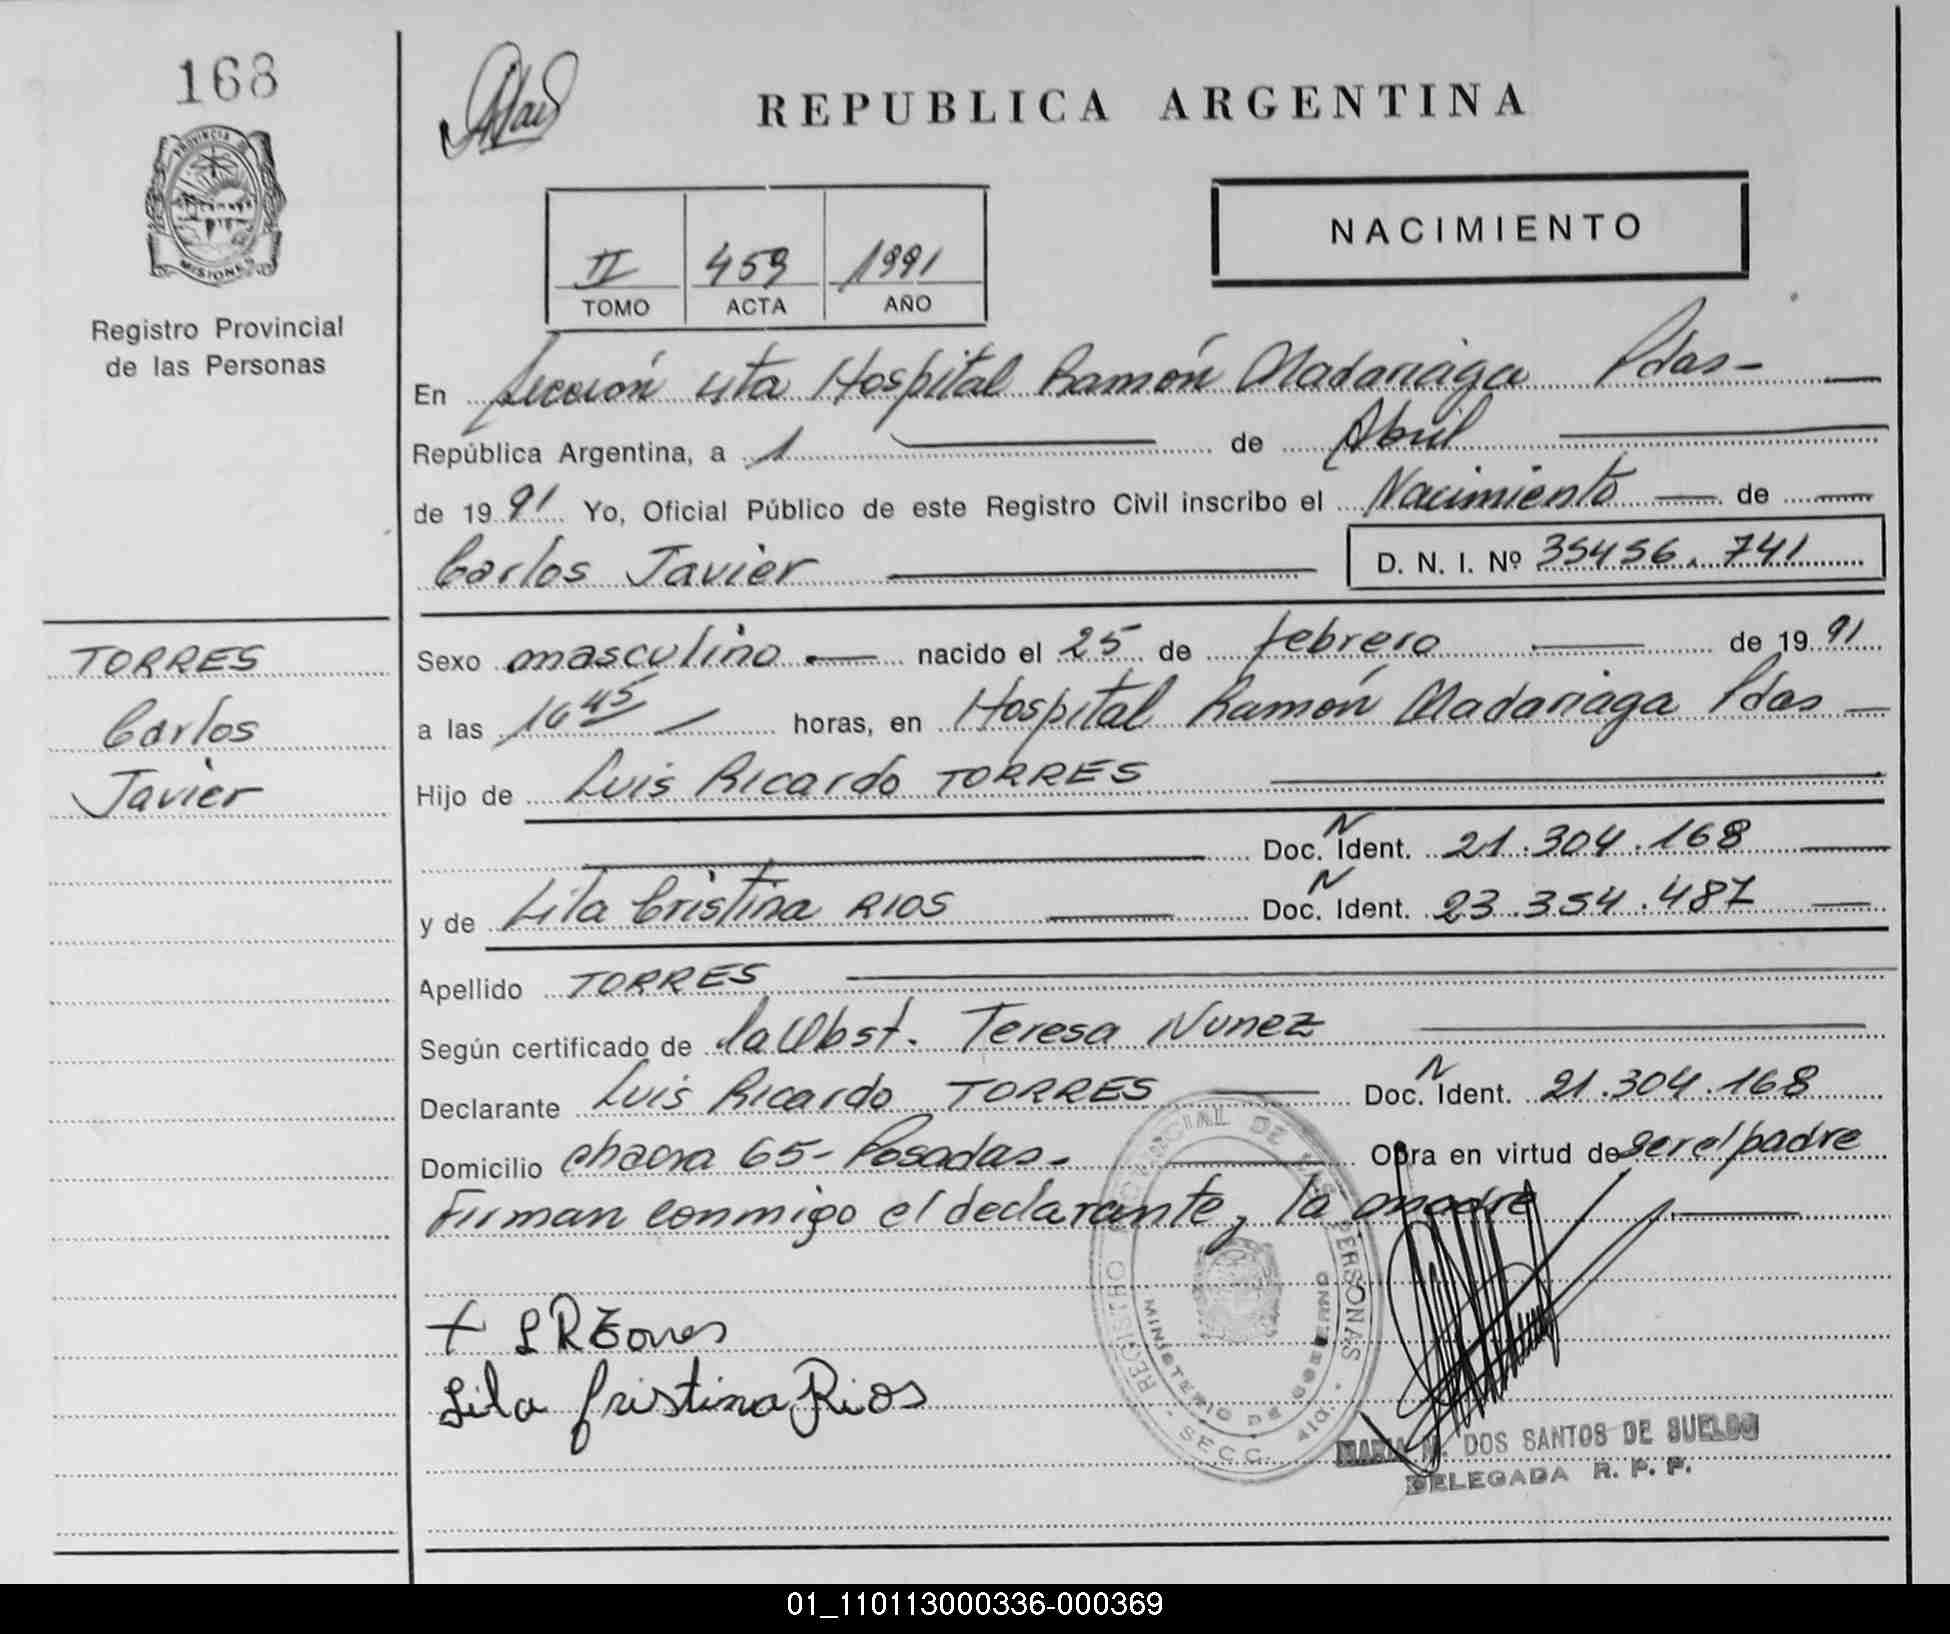 168
PROVINCIA DE
MISIONES
Registro Provincial
de las Personas
REPUBLICA ARGENTINA
NACIMIENTO
II 459 1991
TOMO ACTA AÑO
En Sección 4ta Hospital Ramón Madariaga Pdas-
República Argentina, a 1 de Abril
de 1991 Yo, Oficial Público de este Registro Civil inscribo el Nacimiento de
Carlos Javier D. N. I. Nº 35456.741
TORRES
Carlos
Javier
Sexo masculino nacido el 25 de febrero de 1991
a las 16 45 horas, en Hospital Ramón Madariaga Pdas
Hijo de Luis Ricardo TORRES
Doc. N Ident. 21.304.168
y de Lila Cristina RIOS Doc. N Ident. 23.354.487
Apellido TORRES
Según certificado de la Obst. Teresa Nunez
Declarante Luis Ricardo TORRES Doc. N Ident. 21.304.168
Domicilio chacra 65- Posadas- Obra en virtud de ser el padre
Firman conmigo el declarante, la madre
+ L R Torres
Lila Cristina Rios
REGISTRO PROVINCIAL DE LAS PERSONAS
MINISTERIO DE GOBIERNO
SECC. 4ta.
MARIA M. DOS SANTOS DE SUELDO
DELEGADA R. P. P.
01_110113000336-000369